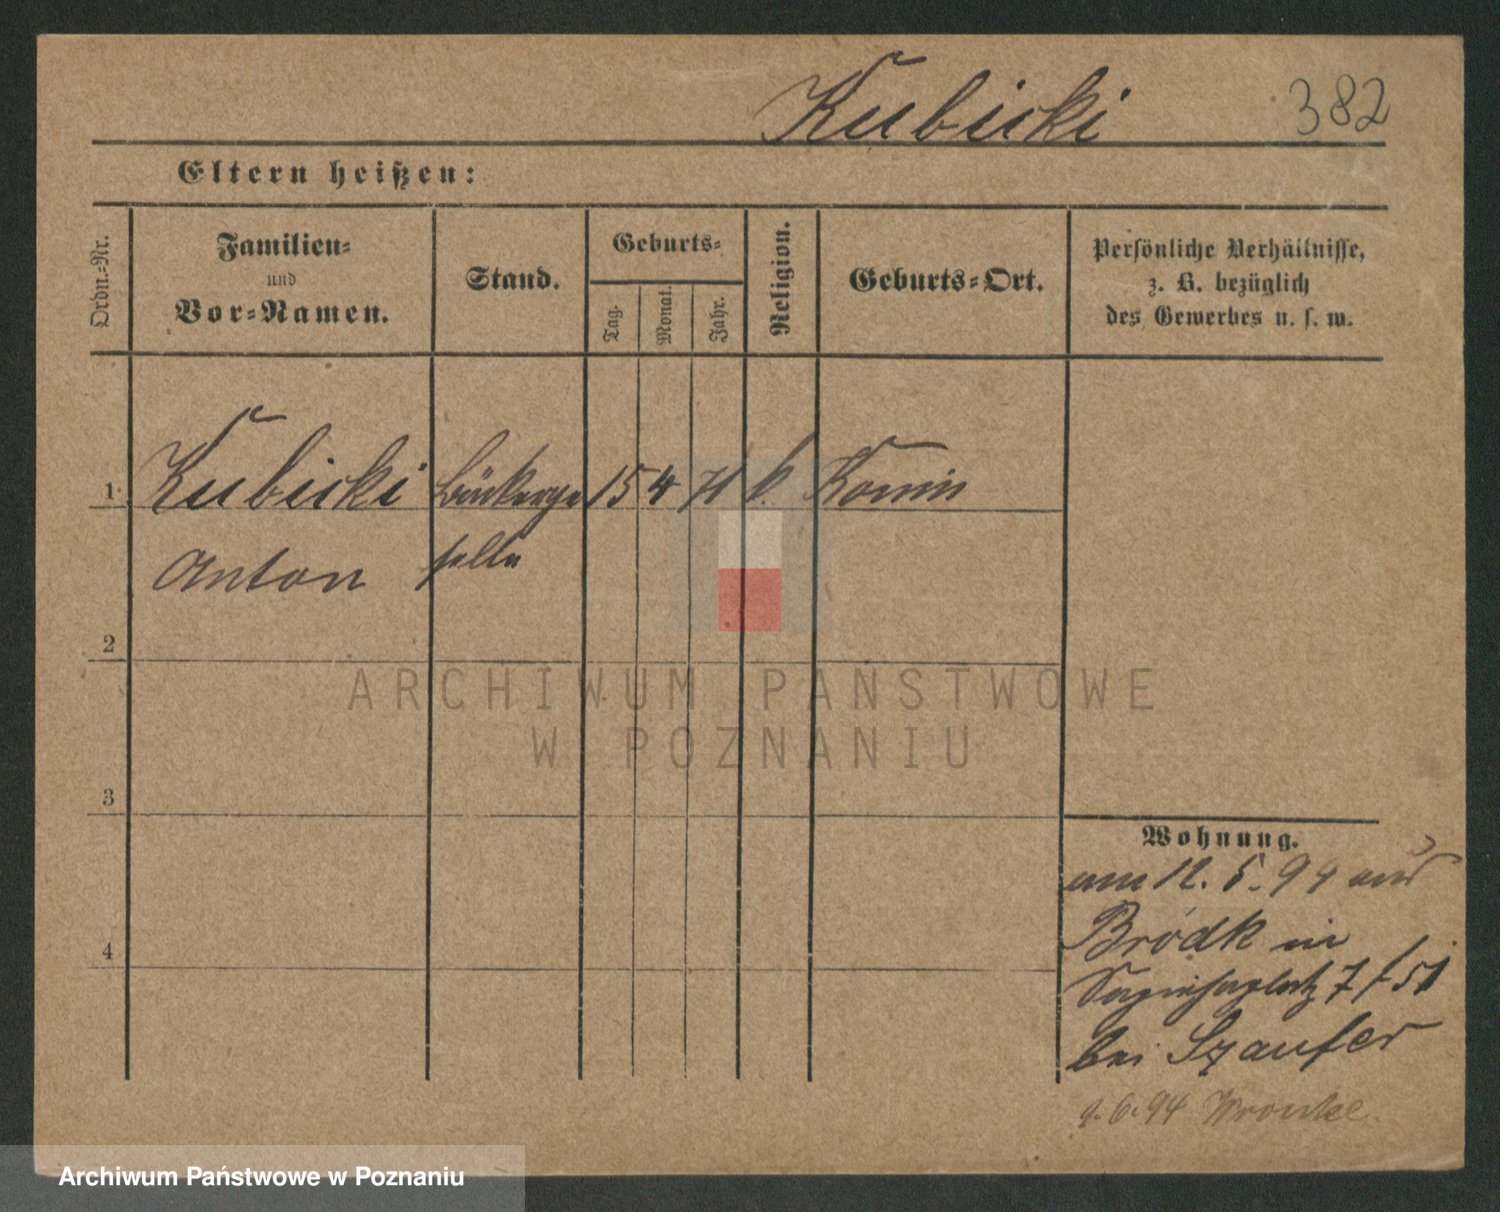 Kubicki 382
Eltern heißen:
Ordn.-Nr.
Familien-
und
Vor-Namen.
Stand.
Geburts-
Tag.
Monat.
Jahr.
Religion.
Geburts-Ort.
Persönliche Verhältnisse,
z. B. bezüglich
des Gewerbes u. s. w.
1 Kubicki Bäckerge 15 4 71 k. Komin
Anton selle
2
3
4
Wohnung.
am 12. 5. 94 aus
Bródk in
Sapiehaplatz 7 / 51
bei Szaufer
9. 6. 94 Wronke.
ARCHIWUM PAŃSTWOWE
W POZNANIU
Archiwum Państwowe w Poznaniu